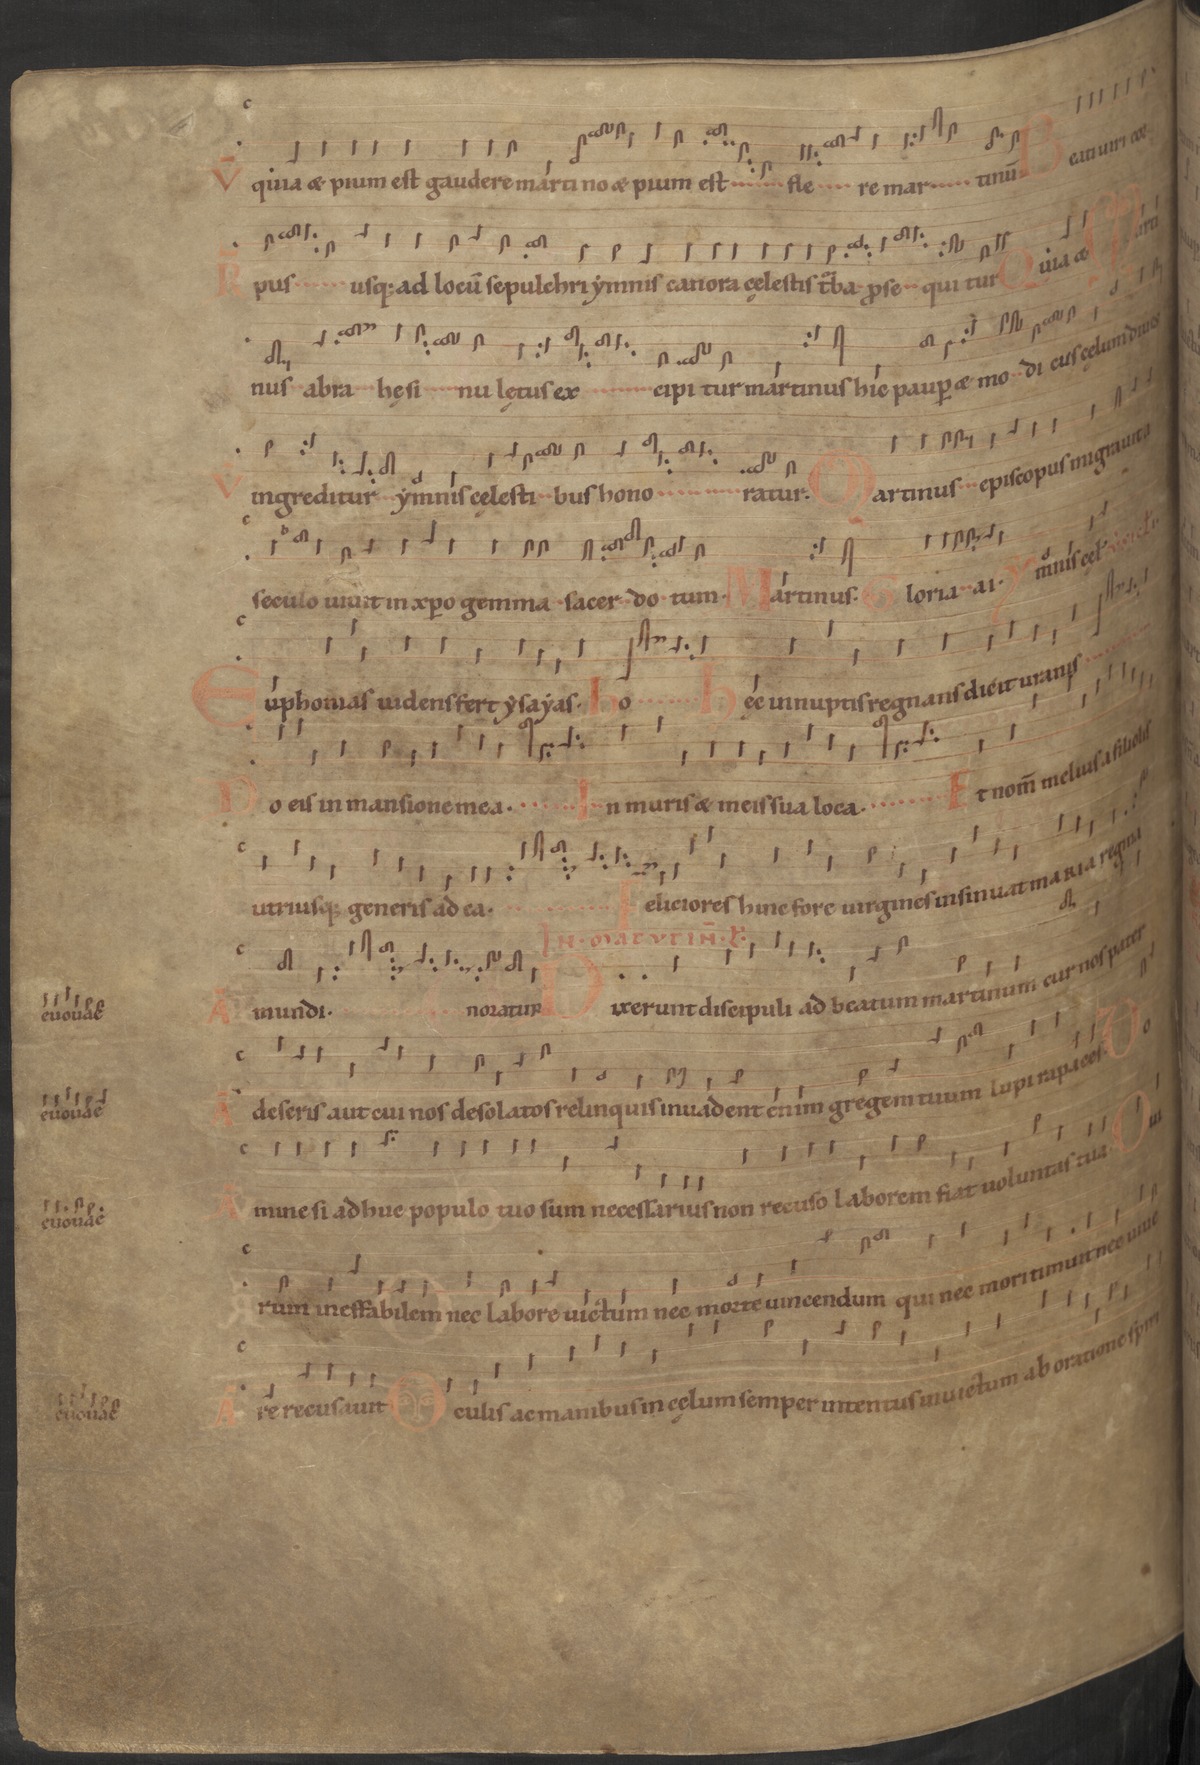 c
V̄ quia & pium est gaudere martino & pium est fle re mar tinū Beati uiri cor
R̄ pus usq; ad locū sepulchri ẏmnis canora cęlestis t̄ba ꝓse qui tur Quia & Marti
nus abra hę si nu lętus ex cipi tur martinus hic paup̲ & mo di cus cęlum diues
V̄ ingreditur ẏmnis cęlesti bus hono ratur. Martinus episcopus migrauit a
c
seculo uiuit in xp̄o gemma sacer do tum. Martinus. Gloria. ai. Ymnis cel
c
Euphonias uidens fert ẏsaẏas. ho hęc innuptis regnans dicit uranis
Do eis in mansione mea. In muris & meis sua loca. Et nom̄ melius a filiolis
c
utriusq; generis ad ea. Feliciores hinc fore uirgines insinuat maria regina
IN. MATVTIN̄. L̄.
c
euouae Ā mundi. noratur Dixerunt discipuli ad beatum martinum cur nos pater
c
euouae Ā deseris aut cui nos desolatos relinquis inuadent enim gregem tuum lupi rapaces. Do
c
euouae Ā mine si adhuc populo tuo sum necessarius non recuso laborem fiat uoluntas tua. O ui
c
rum ineffabilem nec labore uictum nec morte uincendum qui nec mori timuit nec uiue
c
euouae Ā re recusauit Oculis ac manibus in cęlum semper intentus inuictum ab oratione spiri